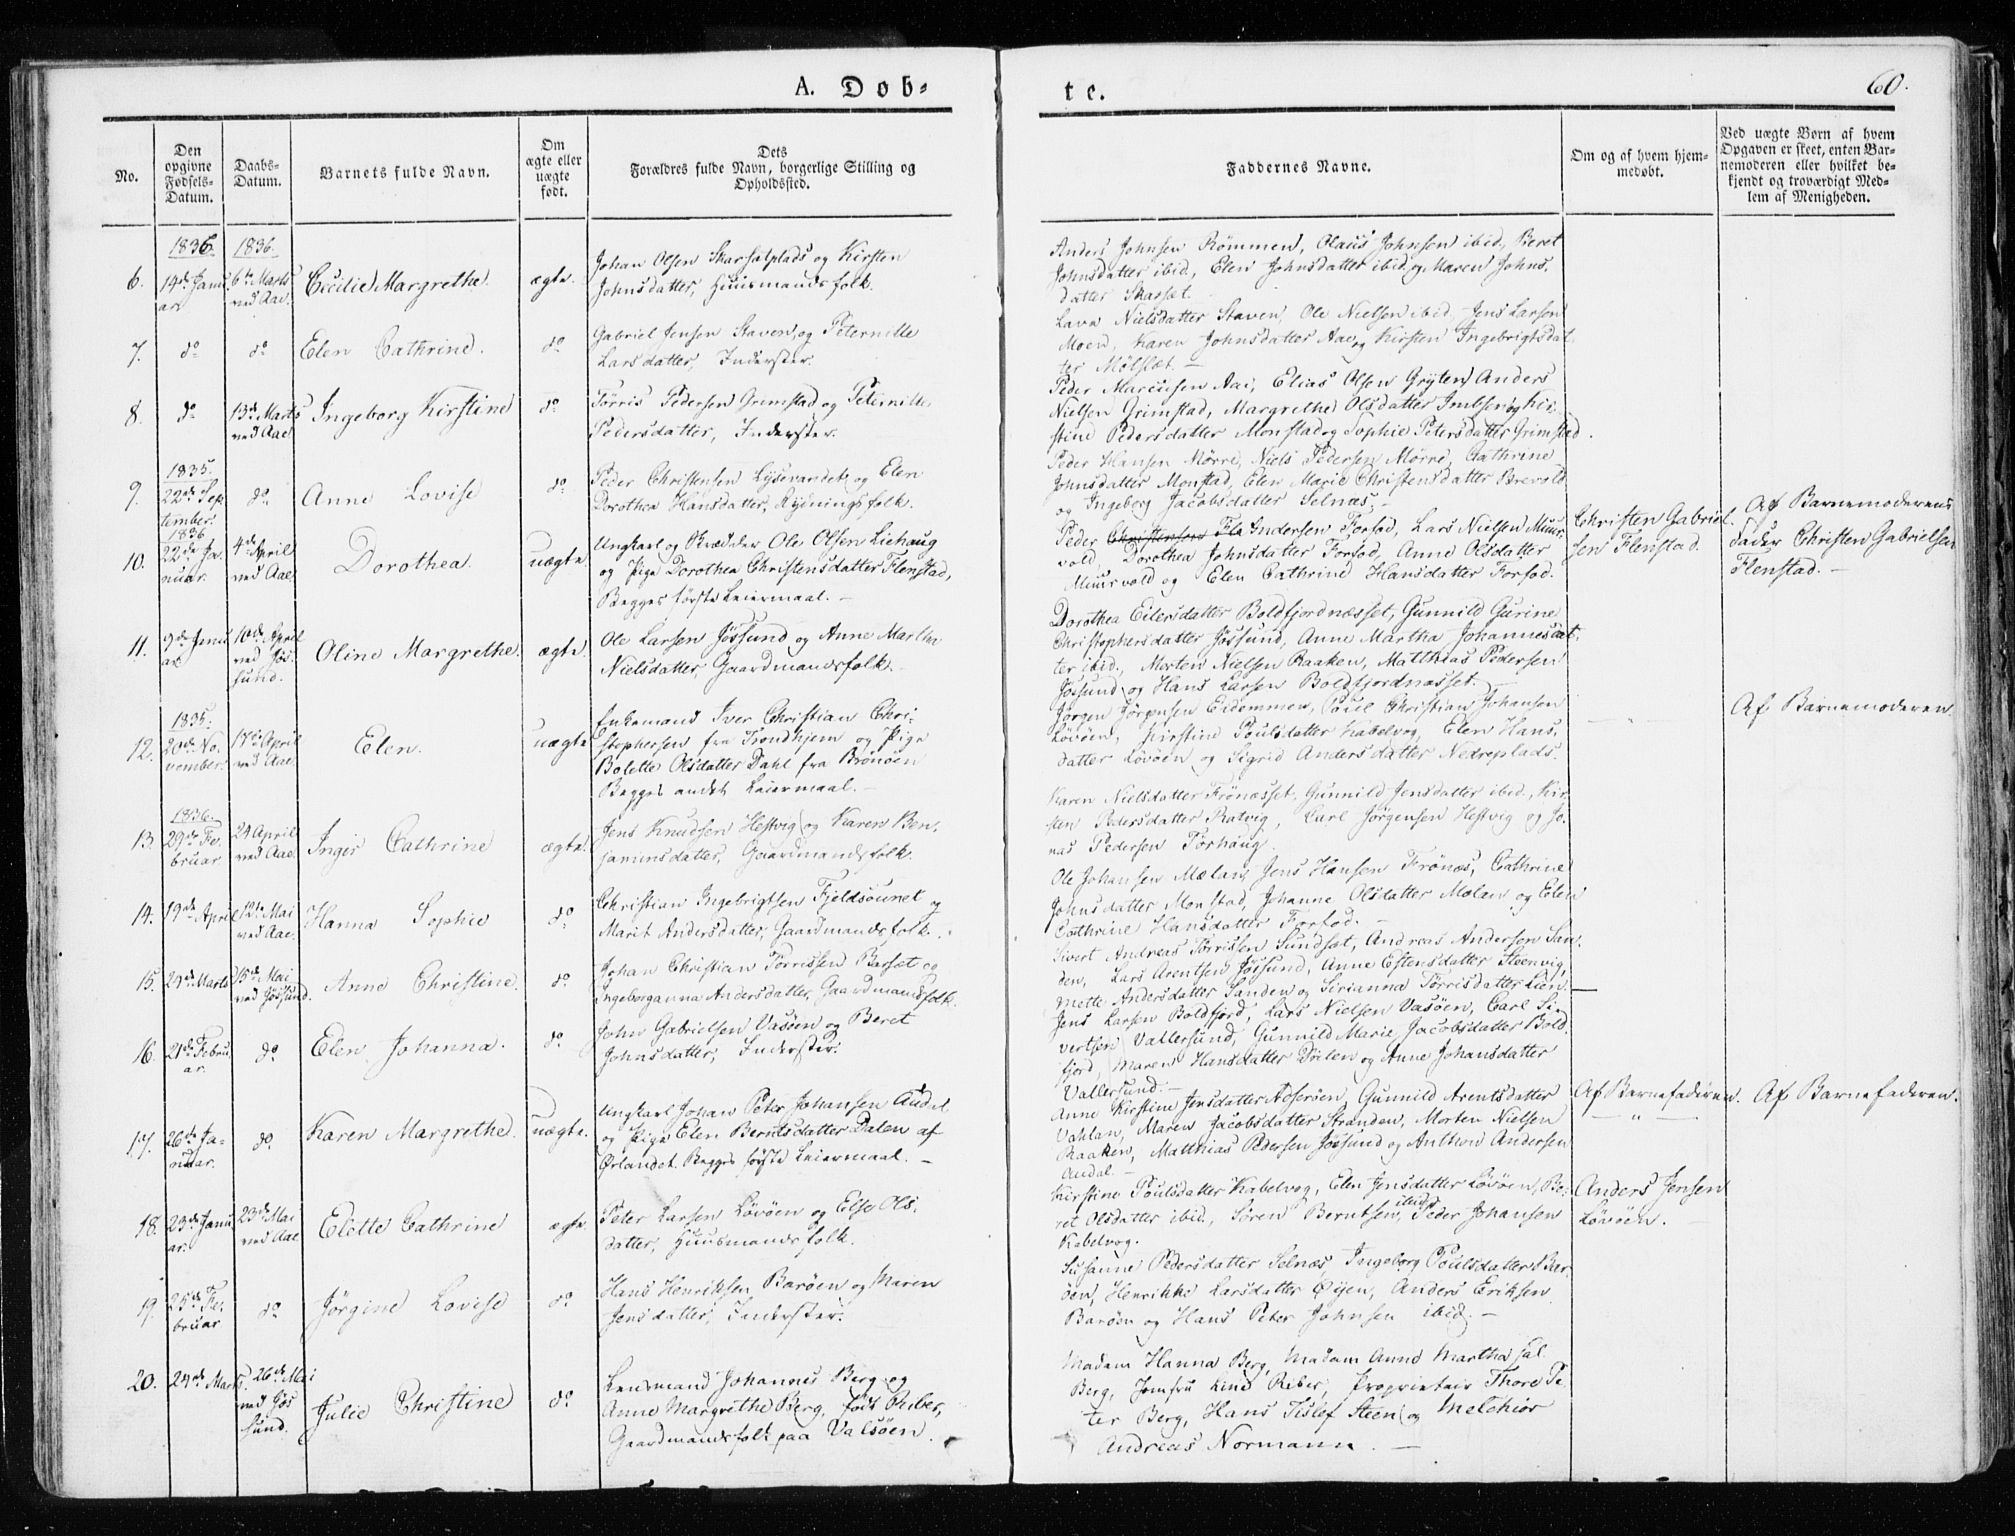 A. Døb-
te.
60.
No.
Den
opgivne
Fødsels-
Datum.
Daabs-
Datum.
Barnets fulde Navn.
Om
ægte eller
uægte
født.
Dets
Forældres fulde Navn, borgerlige Stilling og
Opholdssted.
Faddernes Navne.
Om og af hvem hjem-
medøbt.
Ved uægte Børn af hvem
Opgaven er skeet, enten Bar-
nemoderen eller hvilket be-
kjendt og troværdigt Med-
lem af Menigheden.
6.
1836.
14de Janu
ar.
1836.
6te Marts
ved Aae.
Cecilie Margrethe.
ægte.
Johan Olsen Skarsetplads og Kirsten
Johnsdatter, Huusmandsfolk.
Anders Johnsen Rømmen, Olaus Johnsen ibid, Beret
Johnsdatter ibid, Elen Johnsdatter ibid og Maren Johns,
datter Skarsæt.
7.
do
do
Elen Cathrine.
do
Gabriel Jensen Staven, og Peternille
Larsdatter, Inderster.
Lava Nielsdatter Staven, Ole Nielsen ibid, Jens Larsen
Moen, Karen Johnsdatter Aae og Kirsten Ingebrigtsdat
ter Mølslet. —
8.
do
13de Marts
ved Aae
Ingeborg Kirstine
do
Tørris Pedersen Grimstad og Peternille
Pedersdatter, Inderster.
Peder Marcusen Aae, Elias Olsen Gryten Anders
Nielsen Grimstad, Margrethe Olsdatter og Kir-
stine Pedersdatter Monstad og Sophie Petersdatter Grimstad.
9.
1835.
22de Sep
tember.
do
Anne Lovise
do
Peder Christensen Lysevandet og Elen
Dorothea Hansdatter, Rydningsfolk.
Peder Hansen Mørre, Niels Pedersen Mørre, Cathrine
Johnsdatter Monstad, Elen Marie Christensdatter Brevold
og Ingeborg Jacobsdatter Selnæs. —
10.
1836
22de Ja-
nuar.
4de April
ved Aae
Dorothea.
uægte.
Ungkarl og Ole Olsen Liehaug
og Pige Dorothea Christensdatter Flenstad,
Begges første Leiermaal. —
Peder Christensen Fle Andersen Forsod, Lars Nielsen Muur-
vold, Dorothea Johnsdatter Forsod, Anne Olsdatter
Muurvold og Elen Cathrine Hansdatter Forsod.
Christen Gabriel-
sen Flenstad.
Af Barnemoderens
Fader Christen Gabrielsen
Flenstad. —
11.
9de Janu
ar.
10de April
ved Jøs-
sund.
Oline Margrethe.
ægte.
Ole Larsen Jøssund og Anne Martha
Nielsdatter, Gaardmandsfolk.
Dorothea Eilersdatter Boldfjordnæsset, Gunnild Gurine
Christophersdatter Jøssund, Anne Martha Johannesdat-
ter ibid., Morten Nielsen Raaken, Matthias Pedersen
Jøssund og Hans Larsen Boldfjordnæsset. —
12.
1835.
20de No-
vember.
17de April
ved Aae
Elen.
uægte
Enkemand Iver Christian Chri-
stophersen fra Trondhjem og Pige
Bolette Olsdatter Dahl fra Brønøen
Begges andet Leiermaal. —
Jørgen Jørgensen Eidemmen, Poul Christian Johansen
Løvøen, Kirstine Poulsdatter Kabelvog, Elen Hans-
datter Løvøen og Sigrid Andersdatter Nedreplads.
Af Barnemoderen.
13.
1836.
29de Fe-
bruar.
24 April
ved Aae
Inger Cathrine
ægte.
Jens Knudsen Hestvig og Karen Ben-
jaminsdatter, Gaardmandsfolk.
Karen Nielsdatter Frønæsset, Gunnild Jensdatter ibid., Kir-
sten Pedersdatter Ratvig, Carl Jørgensen Hestvig og Jo-
nas Pedersen Torhaug.
14.
19de April
12te Mai
ved Aae.
Hanna Sophie
do
Christian Ingebrigtsen Fjeldsøunet og
Marit Andersdatter, Gaardmandsfolk.
Ole Johansen Mælan, Jens Hansen Frønæs, Cathrine
Johnsdatter Monstad, Johanne Olsdatter Mælan og Elen
Cathrine Hansdatter Forsod. —
15.
24de Marts
15de Mai
ved Jøssund.
Anne Christine.
do
Johan Christian Tørrissen Barsæt og
Ingeborganna Andersdatter, Gaardmandsfolk.
Sivert Andreas Tørrissen Sundsæt, Andreas Andersen San-
den, Lars Arentsen Jøssund, Anne Estensdatter Steenvig,
Mette Andersdatter Sanden og Sirianna Tørrisdatter Lien.
16.
21de Febru
ar.
do
Elen Johanna.
do
John Gabrielsen Vasøen og Beret
Johnsdatter, Inderster.
Jens Larsen Boldfjord, Lars Nielsen Vasøen, Carl Si-
vertsen Vallersund, Gunnild Marie Jacobsdatter Bold-
fjord, Maren Hansdatter og Anne Johansdatter
Vallersund. —
17.
26de Ja-
nuar.
do
Karen Margrethe.
uægte.
Ungkarl Johan Peter Johansen Audal
og Pige Elen Berntsdatter Dalen af
Ørlandet. Begges første Leiermaal. —
Anne Kirstine Jensdatter Nøserøen, Gunnild Arentsdatter
Vahlan, Maren Jacobsdatter Stranden, Morten Nielsen
Raaken, Matthias Pedersen Jøssund og Anthon Andersen
Audal. —
Af Barnefaderen.
Af Barnefaderen.
18.
23de Janu
ar.
23de Mai
ved Aae
Elotte Cathrine
ægte
Peter Larsen Løvøen og Else Ols-
datter, Huusmandsfolk.
Kirstine Poulsdatter Kabelvog, Elen Jensdatter Løvøen, Be-
ret Olsdatter ibid., Søren Berntsen ibid, Peder Johansen
Kabelvog.
Anders Jensen
Løvøen.
19.
25de Fe-
bruar
do
Jørgine Lovise
do
Hans Henriksen Barøen og Maren
Jensdatter, Inderster.
Susanne Pedersdatter Selnæs, Ingeborg Poulsdatter Bar-
øen, Henrikke Larsdatter Øijen, Anders Eriksen
Barøen og Hans Peter Johnsen ibid. —
20.
24de Marts.
26de Mai
ved Jøs
sund.
Julie Christine
do
Lensmand Johannes Berg og
Anne Margrethe Berg, født Riber,
Gaardmandsfolk paa Valsøen.
Madam Hanna Berg, Madam Anne Martha sal.
Berg, Jomfru Line Riber, Proprietair Thore Pe-
ter Berg, Hans Tislef Steen og Melchior
Andreas Normann. —